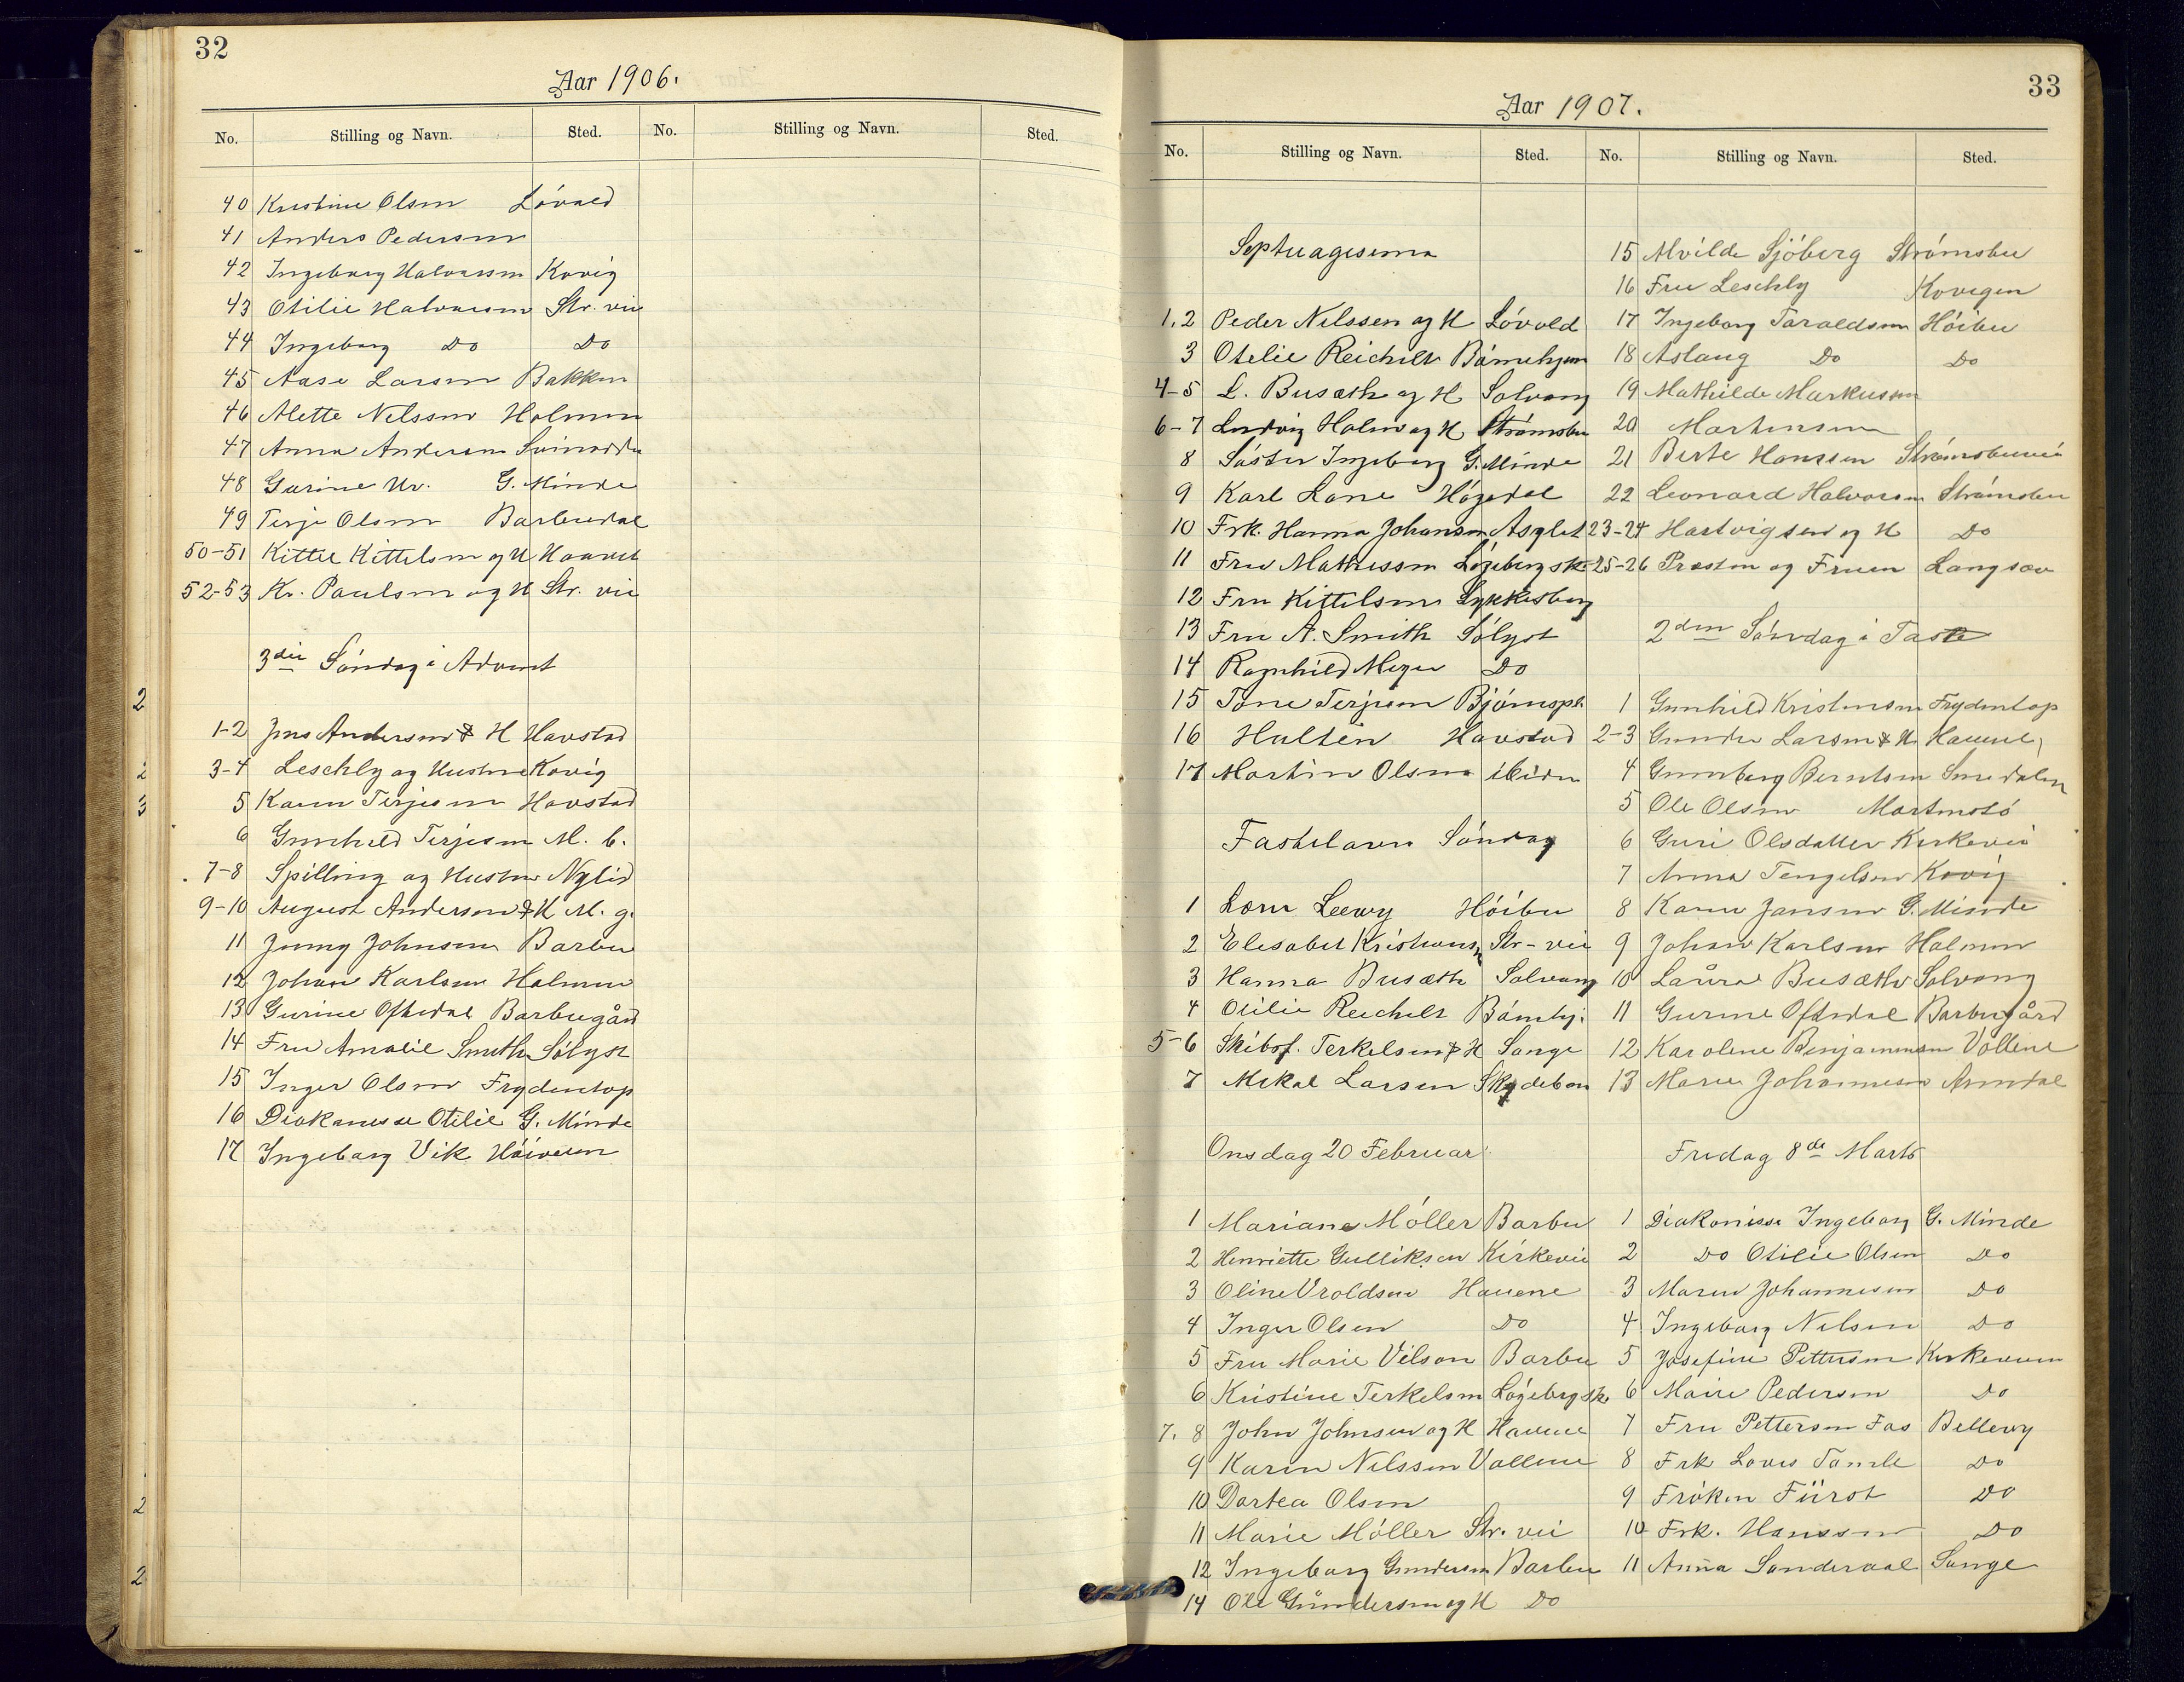 32
Aar 1906.
No. Stilling og Navn. Sted. No. Stilling og Navn. Sted.
40 Kristine Olsen Lövold
41 Anders Pedersen
42 Ingeborg Halvorsen Kovig
43 Otilie Halvorsen Str. vei
44 Ingeborg Do Do
45 Aase Larsen Bakken
46 Alette Nelssen Holmen
47 Anna Andersen
48 Gurine G. Minde
49 Terje Olsen Barbudal
50-51 Kittel Kittelsen og H
52-53 Kr. Paulsen og H Str. vei
3die Söndag i Advent
1-2 Jens Andersen & H Havstad
3-4 Leschly og Hustru Kovig
5 Karen Terjesen Havstad
6 Gunhild Terjesen M. b.
7-8 Spilling og Hustru Nylid
9-10 August Andersen & H M. g.
11 Jenny Johnsen Barbu
12 Johan Karlsen Holmen
13 Gurine Oftedal Barbugård
14 Fru Amalie Smith Sölyst
15 Inger Olsen Frydentop
16 Diakonesse Otilie G. Minde
17 Ingeborg Vik
33
Aar 1907.
No. Stilling og Navn. Sted. No. Stilling og Navn. Sted.
Septuagesima
1.2 Peder Nilssen og H Lövold
3 Otelie Reichelt Börnehjem
4-5 L. Busæth og H Solvang
6-7 Ludvig Holm og H Strömsbu
8 Söster Ingeborg G. Minde
9 Karl Lane Högedal
10 Frk. Hanna Johansen Asylet
11 Fru Mathissen Lögeberg sk.
12 Fru Kittelsen Lykkesborg
13 Fru A. Smith Sölyst
14 Ragnhild Meyer Do
15 Tone Terjesen Björnspl.
16 Hulten Havstad
17 Martin Olsen ibidem
Fastelavns Söndag
1 Leewy Höibu
2 Elisabet Kristiansen Str-vei
3 Hanna Busæth Solvang
4 Otilie Reichelt Börnehj.
5-6 Skibsf. Terkelsen & H Songe
7 Mikal Larsen Skydeban
Onsdag 20 Februar
1 Mariane Möller Barbu
2 Henriette Gulliksen Kirkevei
3 Oline Vroldsen Hauene
4 Inger Olsen Do
5 Fru Marie Vilson Barbu
6 Kristine Terkelsen Lögeberg sk.
7. 8 John Johnsen og H Hauene
9 Karen Nilssen Vollene
10 Dortea Olsen
11 Marie Möller Str. vei
12 Ingeborg Gundersen Barbu
14 Ole Gundersen og H Do
15 Alvilde Sjöberg Strömsbu
16 Fru Leschly Kovigen
17 Ingeborg Taraldsen Höibu
18 Aslaug Do Do
19 Mathilde Markussen
20 Martinsen
21 Berte Hanssen Strömsbuvei
22 Leonard Halvorsen Strömsbu
23-24 Hartvigsen og H Do
25-26 Presten og Fruen Langsæv
2den Söndag i Faste
1 Gunhild Kristensen Frydentop
2-3 Gunder Larsen & H Hauene
4 Gunnborg Berntsen Smedalen
5 Ole Olsen
6 Guri Olsdatter Kirkevei
7 Anna Tengelsen Kovig
8 Karen Jansen G. Minde
9 Johan Karlsen Holmen
10 Laura Busæth Solvang
11 Gurine Oftedal Barbugård
12 Karoline Benjaminsen Vollene
13 Maren Johannesen Arendal
Fredag 8de Marts
1 Diakonisse Ingeborg G. Minde
2 Do Otilie Olsen Do
3 Maren Johannesen Do
4 Ingeborg Nelsen Do
5 Josefine Pettersen Kirkeveien
6 Marie Pedersen Do
7 Fru Petterson Fos Bellevy
8 Frk Do
9 Fröken Fürst Do
10 Frk. Hanssen Do
11 Anna Songe